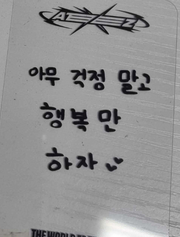 아무 걱정 말고
행복 만
하자
THE WORLD